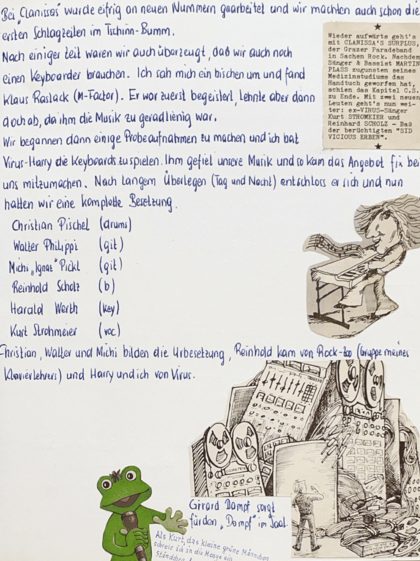 Bei „Clanissa“ wurde eifrig an neuen Nummern gearbeitet und wir machten auch schon die
ersten Schlagzeilen im Tschinn-Bumm.
Nach einiger Zeit waren wir auch überzeugt, daß wir auch noch
einen Keyboarder brauchen. Ich sah mich ein bischen um und fand
Klaus Raslack (M-Factor). Er war zuerst begeistert, lehnte aber dann
doch ab, da ihm die Musik zu geradlienig war.
Wir begannen dann einige Probeaufnahmen zu machen und ich bat
Virus-Harry die Keyboards zu spielen. Ihm gefiel unsere Musik und so kam das Angebot fix bei
uns mitzumachen. Nach langem Überlegen (Tag und Nacht) entschloss er sich und nun
hatten wir eine komplette Besetzung.
Christian Pischel (drums)
Walter Philippi (git)
Michi „Ignaz“ Pickl (git)
Reinhold Scholz (b)
Harald Werth (key)
Kurt Strohmeier (voc)
Christian, Walter und Michi bilden die Urbesetzung, Reinhold kam von Rock-
(Gruppe meines
Klavierlehrers) und Harry und ich von Virus.
Wieder aufwärts geht's
mit CLANISSA'S SURPLUS,
der Grazer Paradeband
in Sachen Rock. Nachdem
Sänger & Bassist MARTIN
PLASS zugunsten seines
Medizinstudiums das
Handtuch geworfen hat,
schien das Kapitel C.S.
zu Ende. Mit zwei neuen
Leuten geht's nun wei-
ter: ex-VIRUS-Sänger
Kurt STROMEIER und
Reinhard SCHOLZ - Baß
der berüchtigten "SID
VICIOUS ERBEN".
Girard Dampf sorgt
für den „Dampf“ im Saal.
Als Kurt, das kleine grüne Männchen,